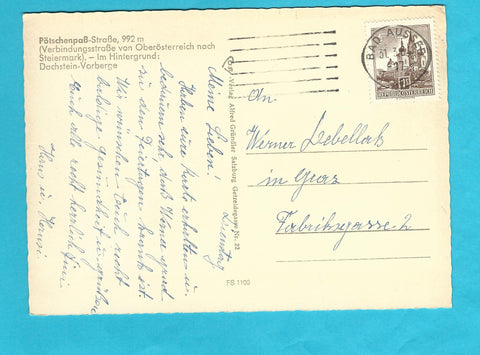 Pötschenpaß-Straße, 992 m
(Verbindungsstraße von Oberösterreich nach
Steiermark). – Im Hintergrund:
Dachstein-Vorberge
Dienstag
Meine Lieben!
Haben eure Karte erhalten u.
bedauern sehr daß Werner grad
zu den Feiertagen krank ist.
Wir wünschen Euch recht
baldige Gesundheit u. grüßen
Euch alle recht herzlich Eure
Hans u. Hansi
Verlag Alfred Gründler Salzburg Getreidegasse Nr. 22
FS 1100
BAD AUSSEE
31. 3.
17
REPUBLIK ÖSTERREICH
An
Werner Lebellak
in Graz
Fabriksgasse 2